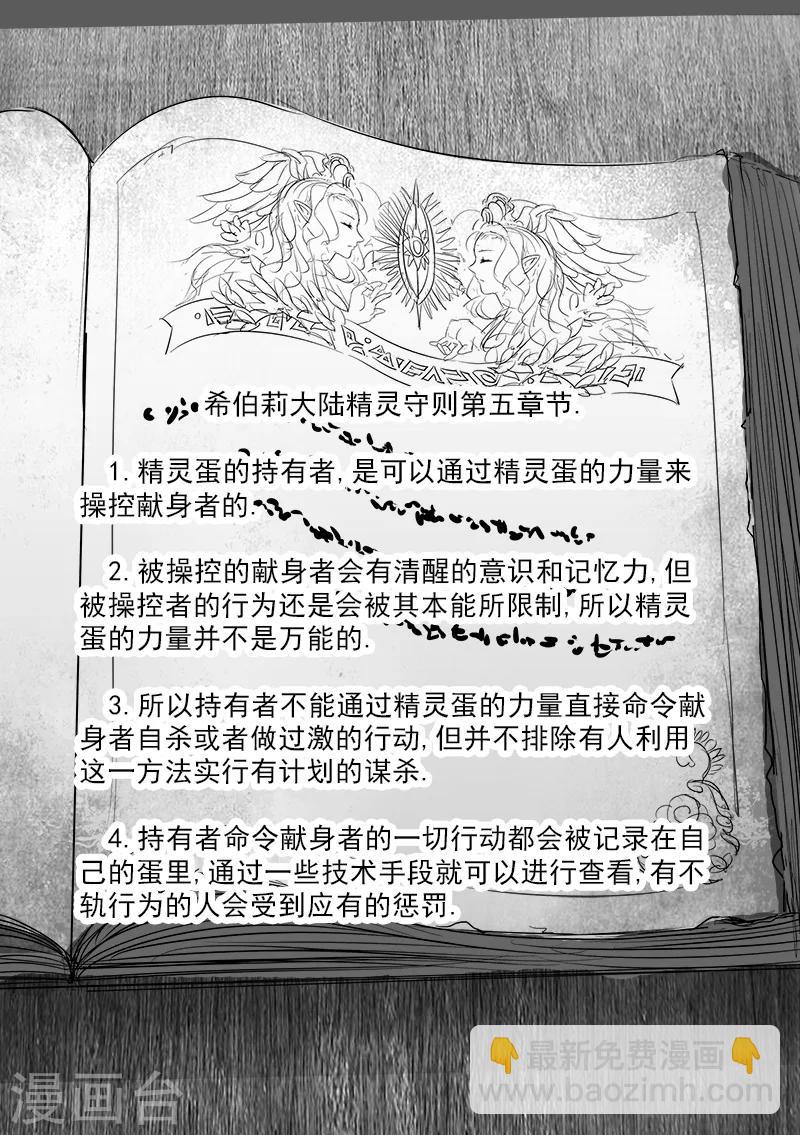 希伯莉大陆精灵守则第五章节.
1.精灵蛋的持有者,是可以通过精灵蛋的力量来
操控献身者的.
2.被操控的献身者会有清醒的意识和记忆力,但
被操控者的行为还是会被其本能所限制,所以精灵
蛋的力量并不是万能的.
3.所以持有者不能通过精灵蛋的力量直接命令献
身者自杀或者做过激的行动,但并不排除有人利用
这一方法实行有计划的谋杀.
4.持有者命令献身者的一切行动都会被记录在自
己的蛋里,通过一些技术手段就可以进行查看,有不
轨行为的人会受到应有的惩罚.
👇最新免费漫画👇
www.baozimh.com
漫画台